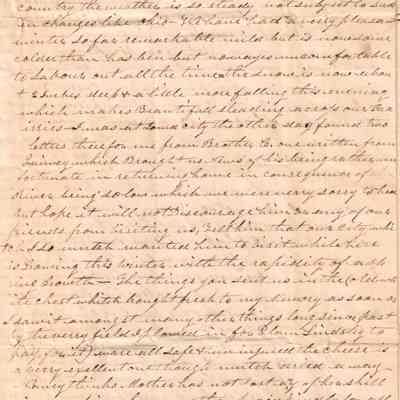 country the weather is so steady not subject to sud
in changes like Ohio - We have had a very pleasa
winter so far remarkable mild but is now some
colder than has ben but no ways uncomfortable
to Labour out all the time the snow is now about
+ inches deep & a little more falling this evening
which makes Beautifull sleading across our Pra
iries - I was at the city the other day found two
letters there for me from Brother one written from
Quincy which Brought us News of his being rather un
fortunate in returning home in consequence of
River being so low which we were very sorry to hear
but hope it will not Discourage him or any of our
friends from Visiting us, tell him that our City whi
ch I so mutch wanted him to Visit while here
is Growing this winter with the rapidity of
ing Growth - The things you sent us in the
the chest which bought fresh to my Memory as soon as
I saw it amongst many other things long since past
the very field I plowed in for Elam Lindsley to
pay for it) ware all safe & un injured the cheese is
a very excellent one though mutch dried a way -
Mother has not lost any of her skill